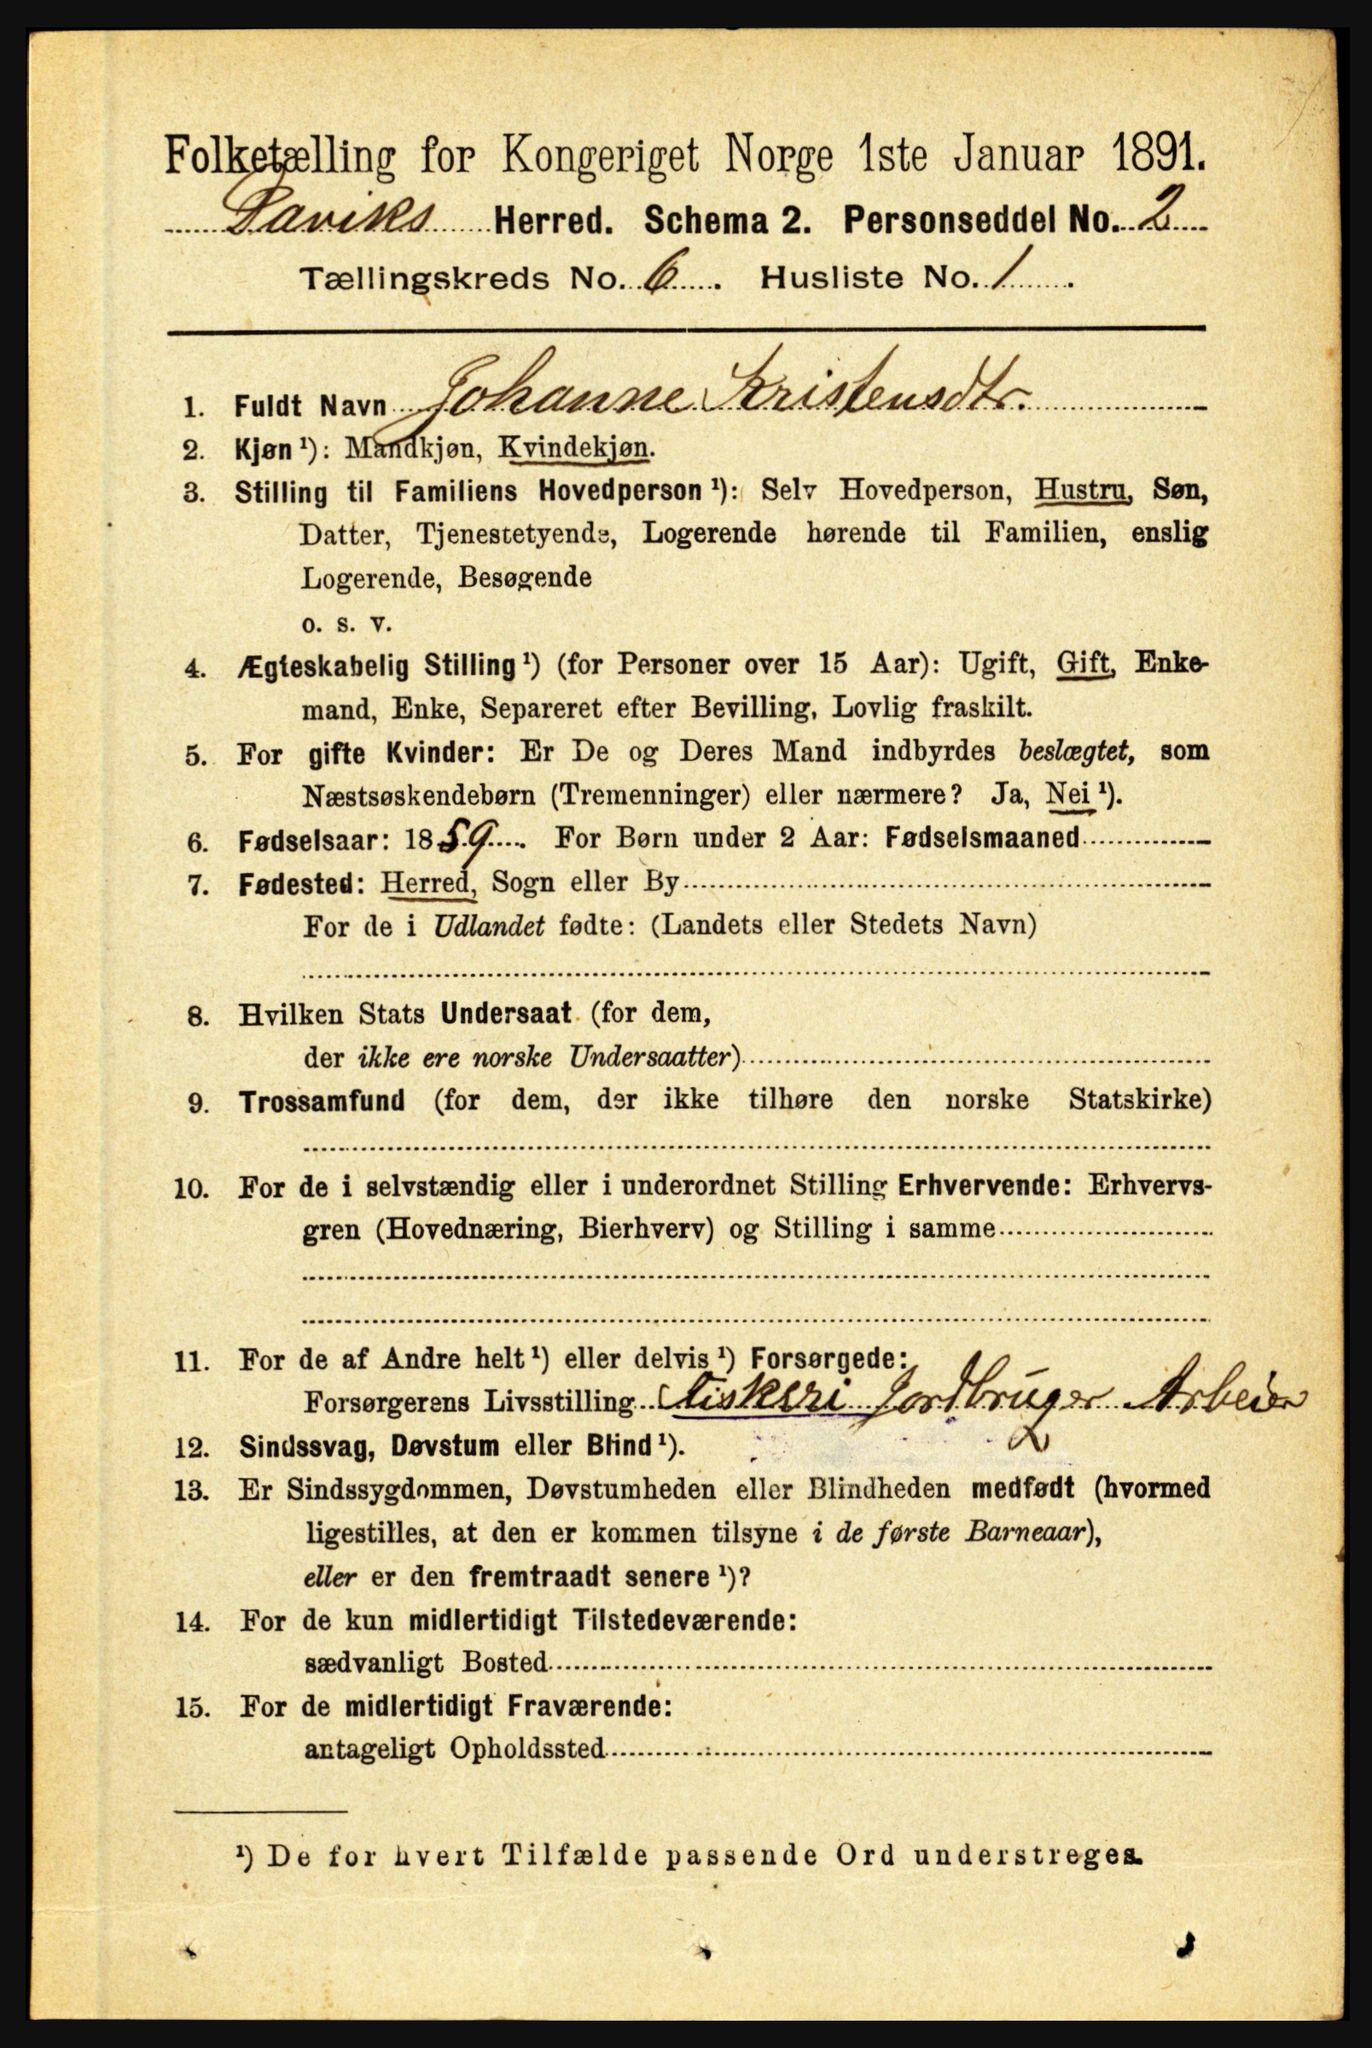 Folketælling for Kongeriget Norge 1ste Januar 1891.
Laviks Herred. Schema 2. Personseddel No. 2
Tællingskreds No. 6. Husliste No. 1.
1. Fuldt Navn Johanne Kristensdtr.
2. Kjøn ¹): Mandkjøn, Kvindekjøn.
3. Stilling til Familiens Hovedperson ¹): Selv Hovedperson, Hustru, Søn,
Datter, Tjenestetyende, Logerende hørende til Familien, enslig
Logerende, Besøgende
o. s. v.
4. Ægteskabelig Stilling ¹) (for Personer over 15 Aar): Ugift, Gift, Enke-
mand, Enke, Separeret efter Bevilling, Lovlig fraskilt.
5. For gifte Kvinder: Er De og Deres Mand indbyrdes beslægtet, som
Næstsøskendebørn (Tremenninger) eller nærmere? Ja, Nei ¹).
6. Fødselsaar: 1859. For Børn under 2 Aar: Fødselsmaaned
7. Fødested: Herred, Sogn eller By
For de i Udlandet fødte: (Landets eller Stedets Navn)
8. Hvilken Stats Undersaat (for dem,
der ikke ere norske Undersaatter)
9. Trossamfund (for dem, der ikke tilhøre den norske Statskirke)
10. For de i selvstændig eller i underordnet Stilling Erhvervende: Erhvervs-
gren (Hovednæring, Bierhverv) og Stilling i samme
11. For de af Andre helt ¹) eller delvis ¹) Forsørgede:
Forsørgerens Livsstilling Fiskeri Jordbruger Arbeier
12. Sindssvag, Døvstum eller Blind ¹).
13. Er Sindssygdommen, Døvstumheden eller Blindheden medfødt (hvormed
ligestilles, at den er kommen tilsyne i de første Barneaar),
eller er den fremtraadt senere ¹)?
14. For de kun midlertidigt Tilstedeværende:
sædvanligt Bosted
15. For de midlertidigt Fraværende:
antageligt Opholdssted
¹) De for hvert Tilfælde passende Ord understreges.